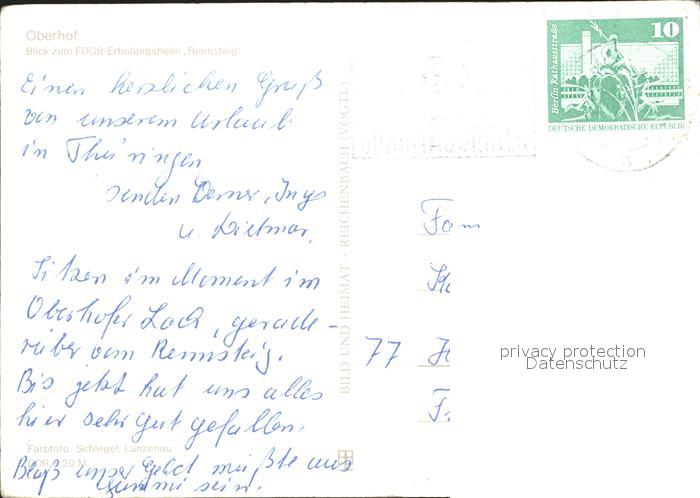 Oberhof
Blick zum FDGB-Erholungsheim „Rennsteig"
Einen herzlichen Gruß
von unserem Urlaub
in Thüringen
senden Werner, Inge
u. Dietmar.
Sitzen im Moment im
Oberhofer Loch, gerade-
rüber vom Rennsteig.
Bis jetzt hat uns alles
hier sehr gut gefallen.
Farbfoto: Schlegel, Lunzenau
Bloß unser Geld müßte aus
Gummi sein.
BILD UND HEIMAT · REICHENBACH (VOGTL)
Berlin-Rathausstraße
10
DEUTSCHE DEMOKRATISCHE REPUBLIK
Fam
77
privacy protection
Datenschutz